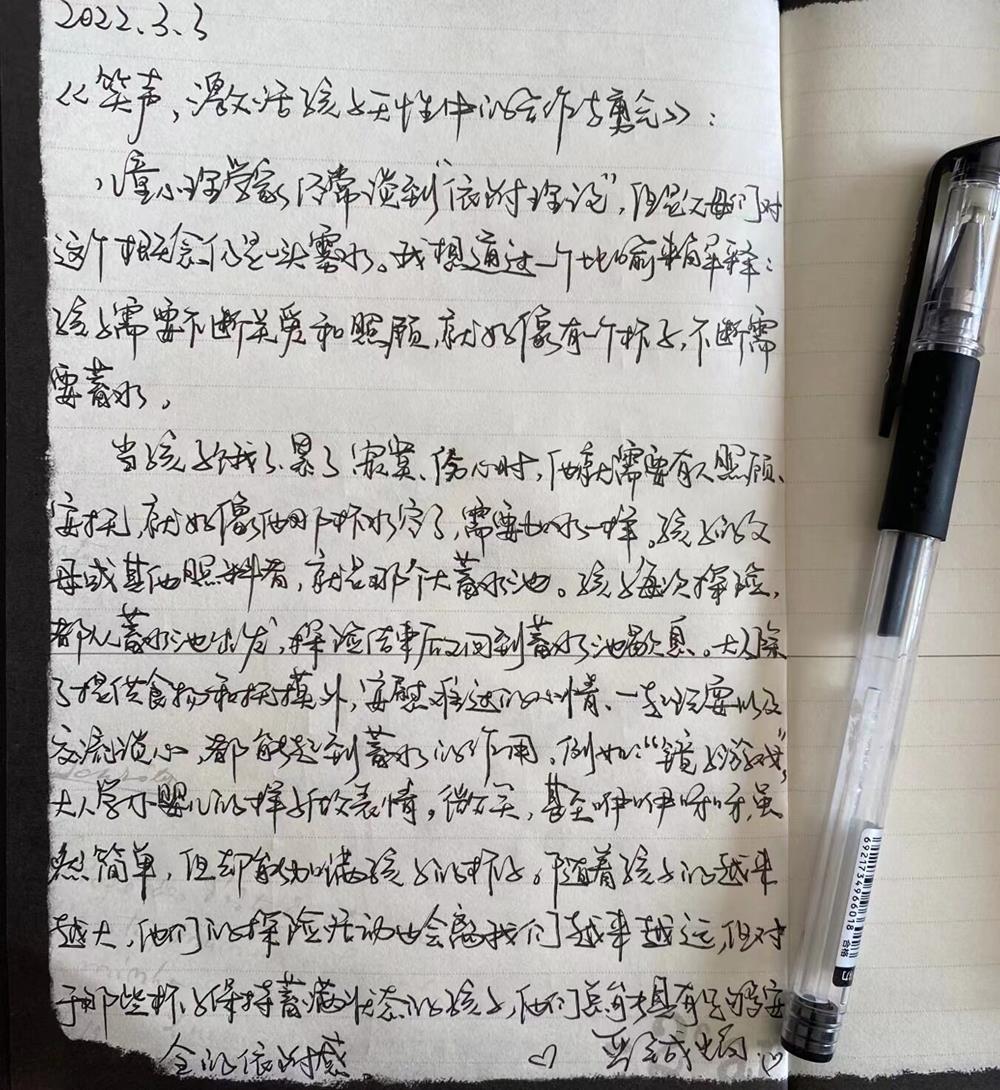 2022.3.3
《笑声,激活孩子天性中的合作与勇气》:
儿童心理学家经常谈到“依附理论”,但是父母们对
这个概念仍是一头雾水。我想通过一个比喻来解释:
孩子需要不断关爱和照顾,就好像有一个杯子,不断需
要蓄水。
当孩子饿了、累了、寂寞、伤心时,他就需要有人照顾、
安抚,就好像他那杯水空了,需要加水一样。孩子的父
母或其他照料者,就是那个大蓄水池。孩子每次探险,
都从蓄水池出发,探险结束后又回到蓄水池歇息。大人除
了提供食物和抚摸外,安慰难过的心情、一起玩耍以及
交流谈心,都能起到蓄水的作用。例如:“镜子游戏”,
大人学小婴儿的样子做表情,微笑,甚至咿咿呀呀,虽
然简单,但却能加满孩子的杯子。随着孩子的越来
越大,他们的探险活动也会离我们越来越远,但对
于那些杯子保持蓄满状态的孩子,他们总能具有足够安
全的依附感
6921734966018
合格